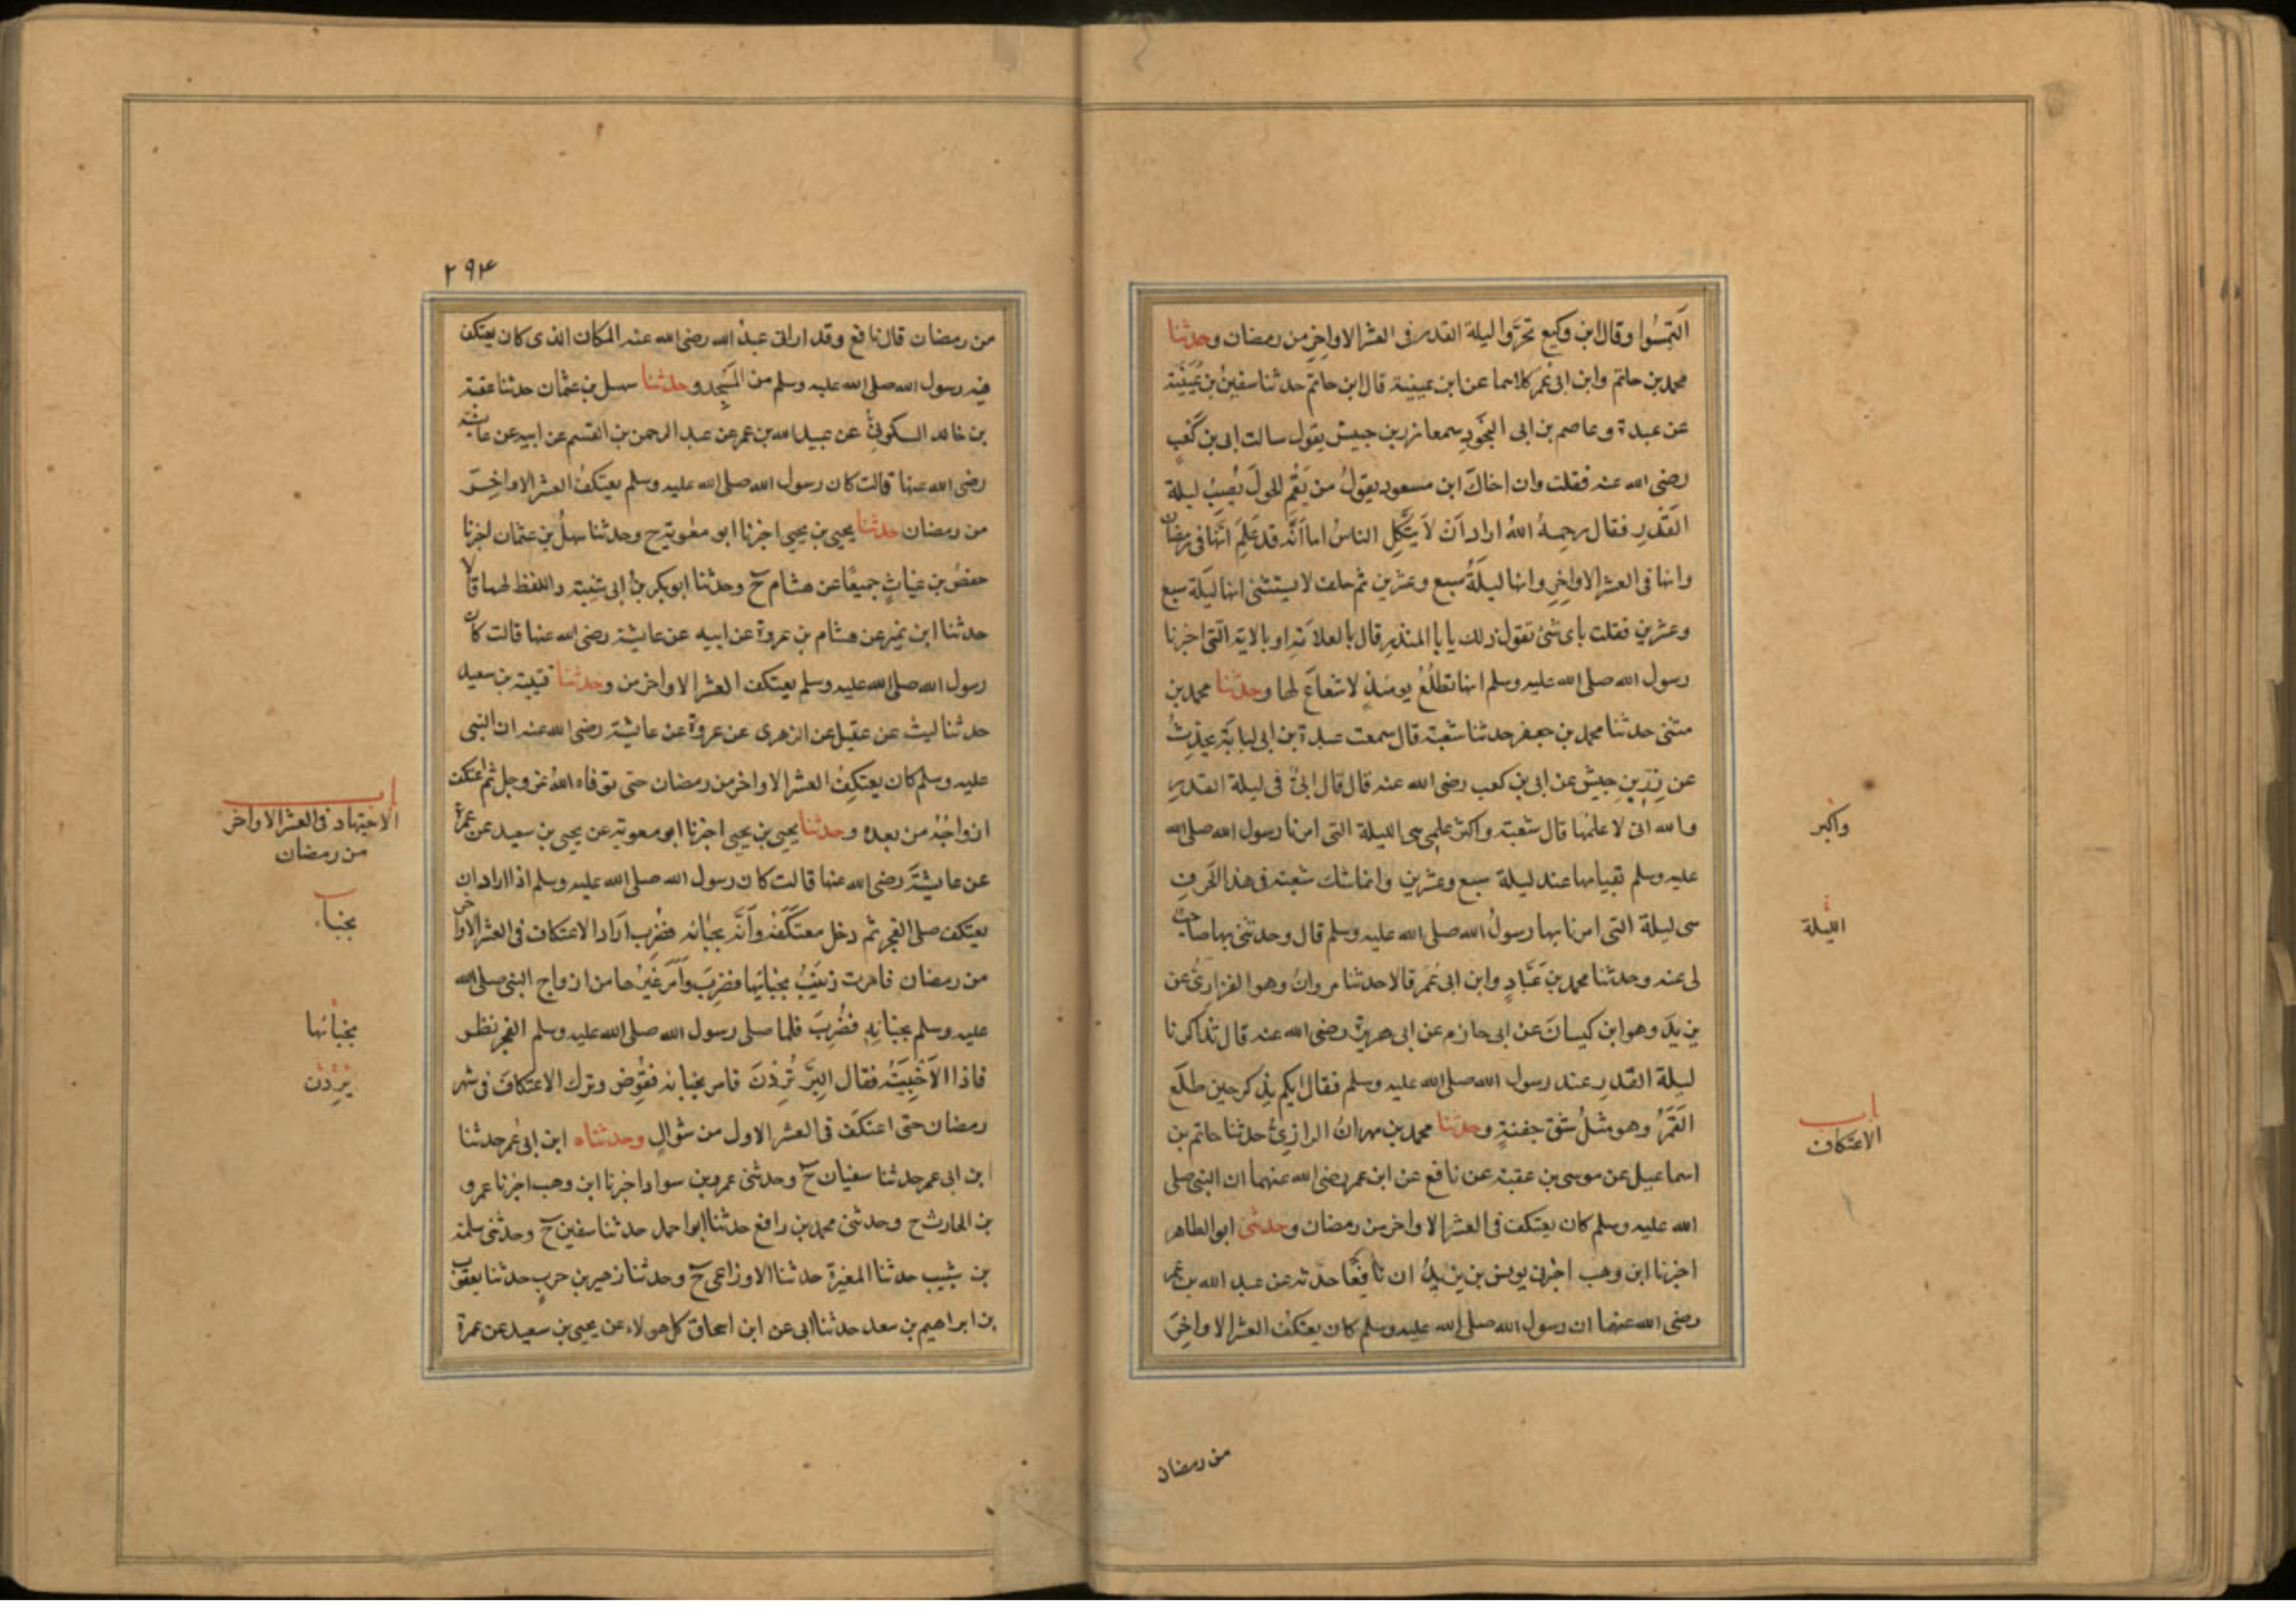 التمسوا وقال ابن وكيع تحروا ليلة القدر فى العشر الاواخر من رمضان وحدثنا
محمد بن حاتم وابن ابى عمر كلاهما عن ابن عيينة قال ابن حاتم حدثنا سفين بن عيينة
عن عبدة وعاصم بن ابى النجود سمعا زر بن حبيش يقول سالت ابى بن كعب
رضى الله عنه فقلت وان اخاك ابن مسعود يقول من يقم الحول يصب ليلة
القدر فقال رحمه الله اراد ان لا يتكل الناس اما انه قد علم انها فى رمضان
وانها فى العشر الاواخر وانها ليلة سبع وعشرين ثم حلف لا يستثنى انها ليلة سبع
وعشرين فقلت باى شئ تقول ذلك يا با المنذر قال بالعلامة او بالاية التى اخبرنا
رسول الله صلى الله عليه وسلم انها تطلع يومئذ لا شعاع لها وحدثنا محمد بن
مثنى حدثنا محمد بن جعفر حدثنا شعبة قال سمعت عبدة بن ابى لبابة يحدث
عن زر بن حبيش عن ابى بن كعب رضى الله عنه قال قال ابى فى ليلة القدر
والله انى لا علمها قال شعبة واكثر علمى هى الليلة التى امرنا رسول الله صلى الله
واكبر
عليه وسلم بقيامها عند ليلة سبع وعشرين وانما شك شعبة فى هذا الحرف
هى ليلة التى امرنا بها رسول الله صلى الله عليه وسلم قال وحدثنى بها صاحب
الليلة
لى عنه وحدثنا محمد بن عباد وابن ابى عمر قالا حدثنا مروان وهو الفزارى عن
يزيد وهو ابن كيسان عن ابى حازم عن ابى هريرة رضى الله عنه قال تذاكرنا
ليلة القدر عند رسول الله صلى الله عليه وسلم فقال ايكم يذكر حين طلع
القمر وهو مثل شق جفنة وحدثنا محمد بن مهران الرازى حدثنا حاتم بن
باب
الاعتكاف
اسماعيل عن موسى بن عقبة عن نافع عن ابن عمر رضى الله عنهما ان النبى صلى
الله عليه وسلم كان يعتكف فى العشر الاواخر من رمضان وحدثنى ابو الطاهر
اخبرنا ابن وهب اخبرنى يونس بن يزيد ان نافعا حدثه عن عبد الله بن عمر
رضى الله عنهما ان رسول الله صلى الله عليه وسلم كان يعتكف العشر الاواخر
من رمضان
٢٩٤
من رمضان قال نافع وقد ارانى عبد الله رضى الله عنه المكان الذى كان يعتكف
فيه رسول الله صلى الله عليه وسلم من المسجد وحدثنا سهل بن عثمان حدثنا عقبة
بن خالد السكونى عن عبيد الله بن عمر عن عبد الرحمن بن القسم عن ابيه عن عائشة
رضى الله عنها قالت كان رسول الله صلى الله عليه وسلم يعتكف العشر الاواخر
من رمضان حدثنا يحيى بن يحيى اخبرنا ابو معوية ح وحدثنا سهل بن عثمان اخبرنا
حفص بن غياث جميعا عن هشام ح وحدثنا ابو بكر بن ابى شيبة واللفظ لهما قالا
حدثنا ابن نمير عن هشام بن عروة عن ابيه عن عايشة رضى الله عنها قالت كان
رسول الله صلى الله عليه وسلم يعتكف العشر الاواخر من وحدثنا قتيبة بن سعيد
حدثنا ليث عن عقيل عن الزهرى عن عروة عن عايشة رضى الله عنه ان النبى
عليه وسلم كان يعتكف العشر الاواخر من رمضان حتى توفاه الله عز وجل ثم اعتكف
ازواجه من بعده وحدثنا يحيى بن يحيى اخبرنا ابو معوية عن يحيى بن سعيد عن عمرة
باب
الاجتهاد فى العشر الاواخر
من رمضان
عن عايشة رضى الله عنها قالت كان رسول الله صلى الله عليه وسلم اذا اراد ان
يعتكف صلى الفجر ثم دخل معتكفه وانه بخبائه فضرب اراد الاعتكاف فى العشر الاواخر
بخباء
من رمضان فامرت زينب بخبائها فضرب وامر غيرها من ازواج النبى صلى الله
عليه وسلم بخبائه فضرب فلما صلى رسول الله صلى الله عليه وسلم الفجر نظر
بخبائها
فاذا الاخبية فقال البر تردن فامر بخبائه فقوض وترك الاعتكاف فى شهر
يردن
رمضان حتى اعتكف فى العشر الاول من شوال وحدثناه ابن ابى عمر حدثنا
ابن ابى عمر حدثنا سفيان ح وحدثنى عمرو بن سواد اخبرنا ابن وهب اخبرنا عمرو
بن الحارث ح وحدثنى محمد بن رافع حدثنا ابو احمد حدثنا سفين ح وحدثنى سلمة
بن شبيب حدثنا المغيرة حدثنا الاوزاعى ح وحدثنا زهير بن حرب حدثنا يعقوب
بن ابراهيم بن سعد حدثنا ابى عن ابن اسحاق كل هولاء عن يحيى بن سعيد عن عمرة